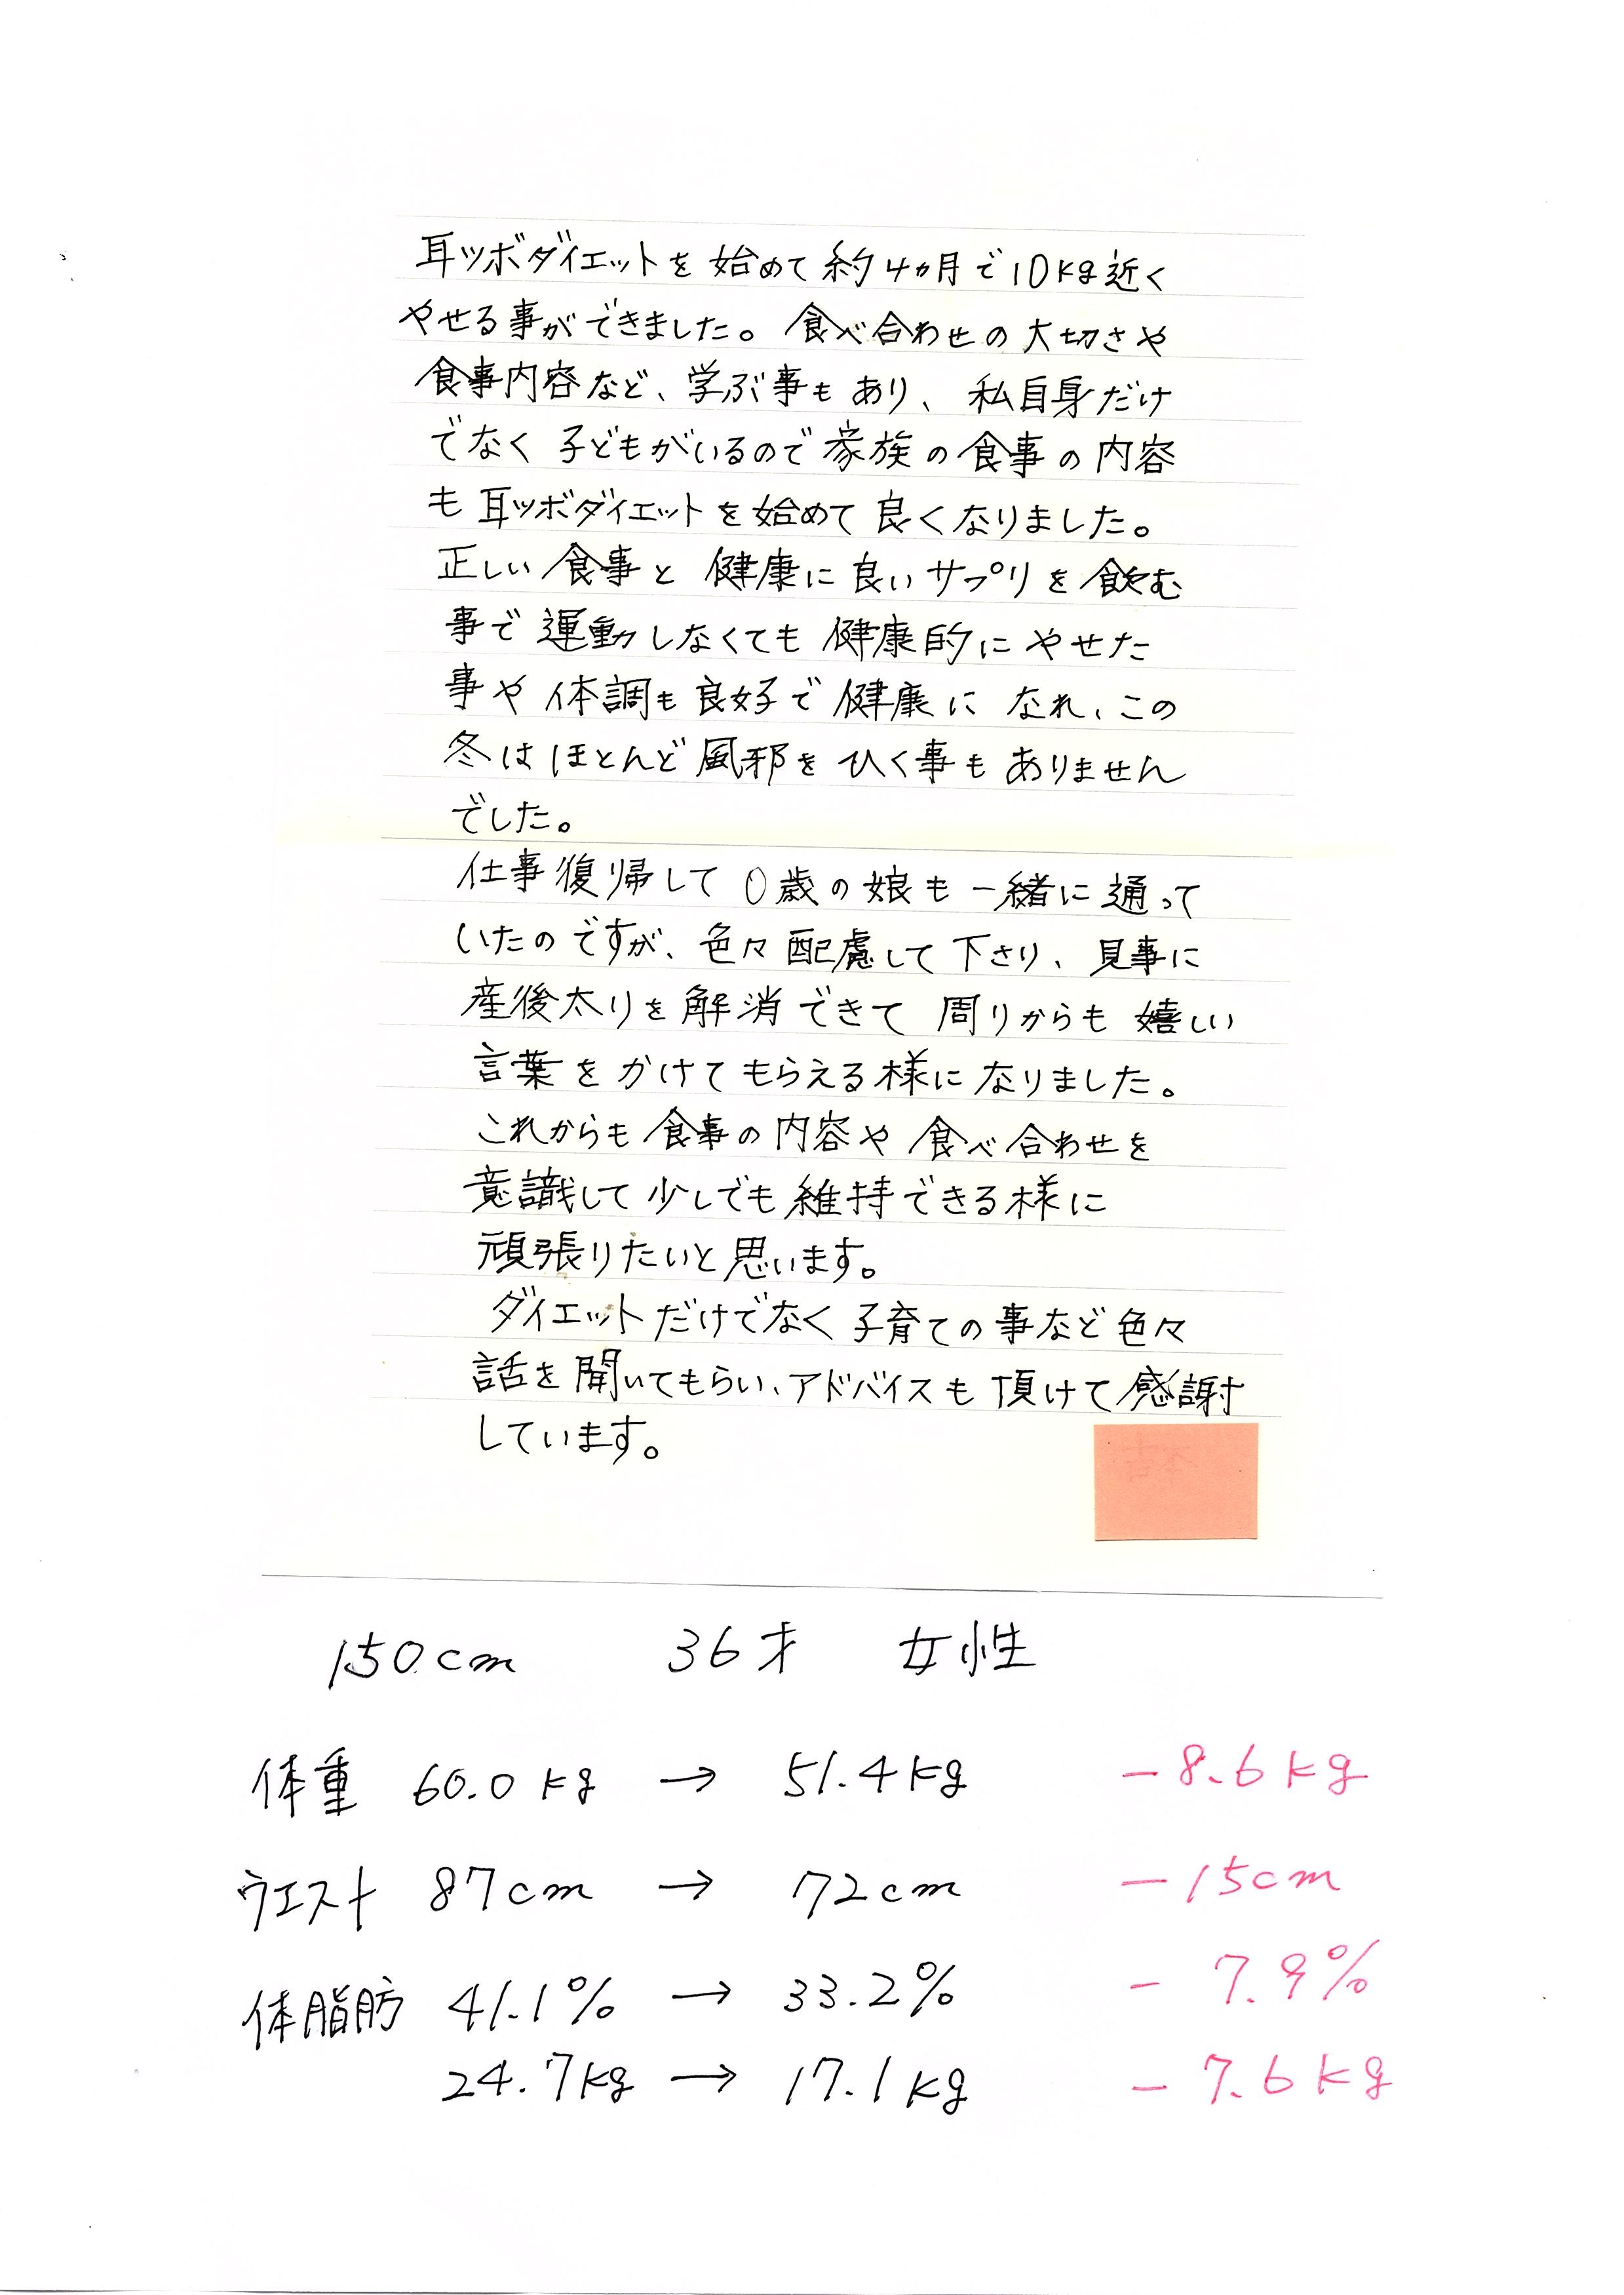 耳ツボダイエットを始めて約4ヵ月で10kg近く
やせる事ができました。食べ合わせの大切さや
食事内容など、学ぶ事もあり、私自身だけ
でなく子どもがいるので家族の食事の内容
も耳ツボダイエットを始めて良くなりました。
正しい食事と健康に良いサプリを飲む
事で運動しなくても健康的にやせた
事や体調も良好で健康になれ、この
冬はほとんど風邪をひく事もありません
でした。
仕事復帰して0歳の娘も一緒に通って
いたのですが、色々配慮して下さり、見事に
産後太りを解消できて周りからも嬉しい
言葉をかけてもらえる様になりました。
これからも食事の内容や食べ合わせを
意識して少しでも維持できる様に
頑張りたいと思います。
ダイエットだけでなく子育ての事など色々
話を聞いてもらい、アドバイスも頂けて感謝
しています。
150cm 36才 女性
体重 60.0kg → 51.4kg -8.6kg
ウエスト 87cm → 72cm -15cm
体脂肪 41.1% → 33.2% -7.9%
24.7kg → 17.1kg -7.6kg